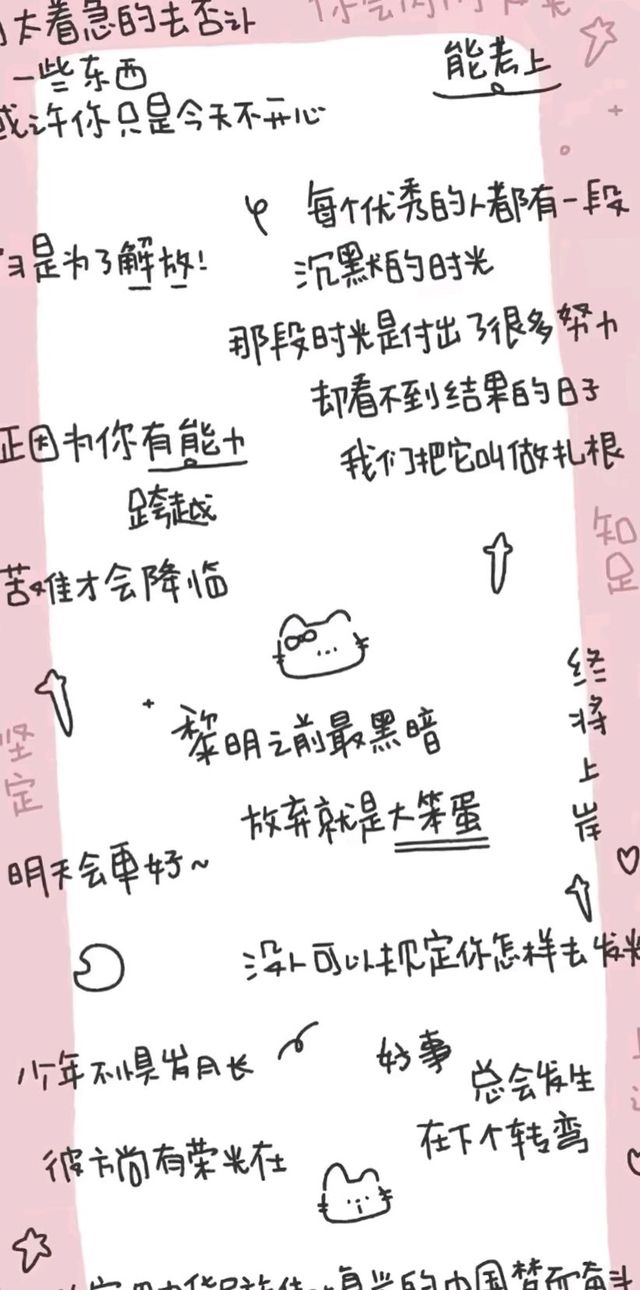 太着急的去否认
一些东西
或许你只是今天不开心
能考上
每个优秀的人都有一段
沉默的时光
是为了解放!
那段时光是付出了很多努力
却看不到结果的日子
我们把它叫做扎根
正因为你有能力
跨越
苦难才会降临
知
足
终
将
上
岸
坚
定
黎明之前最黑暗
放弃就是大笨蛋
明天会更好~
没人可以规定你怎样去发光
少年不惧岁月长
彼方尚有荣光在
好事
总会发生
在下个转弯
的中国梦而奋斗